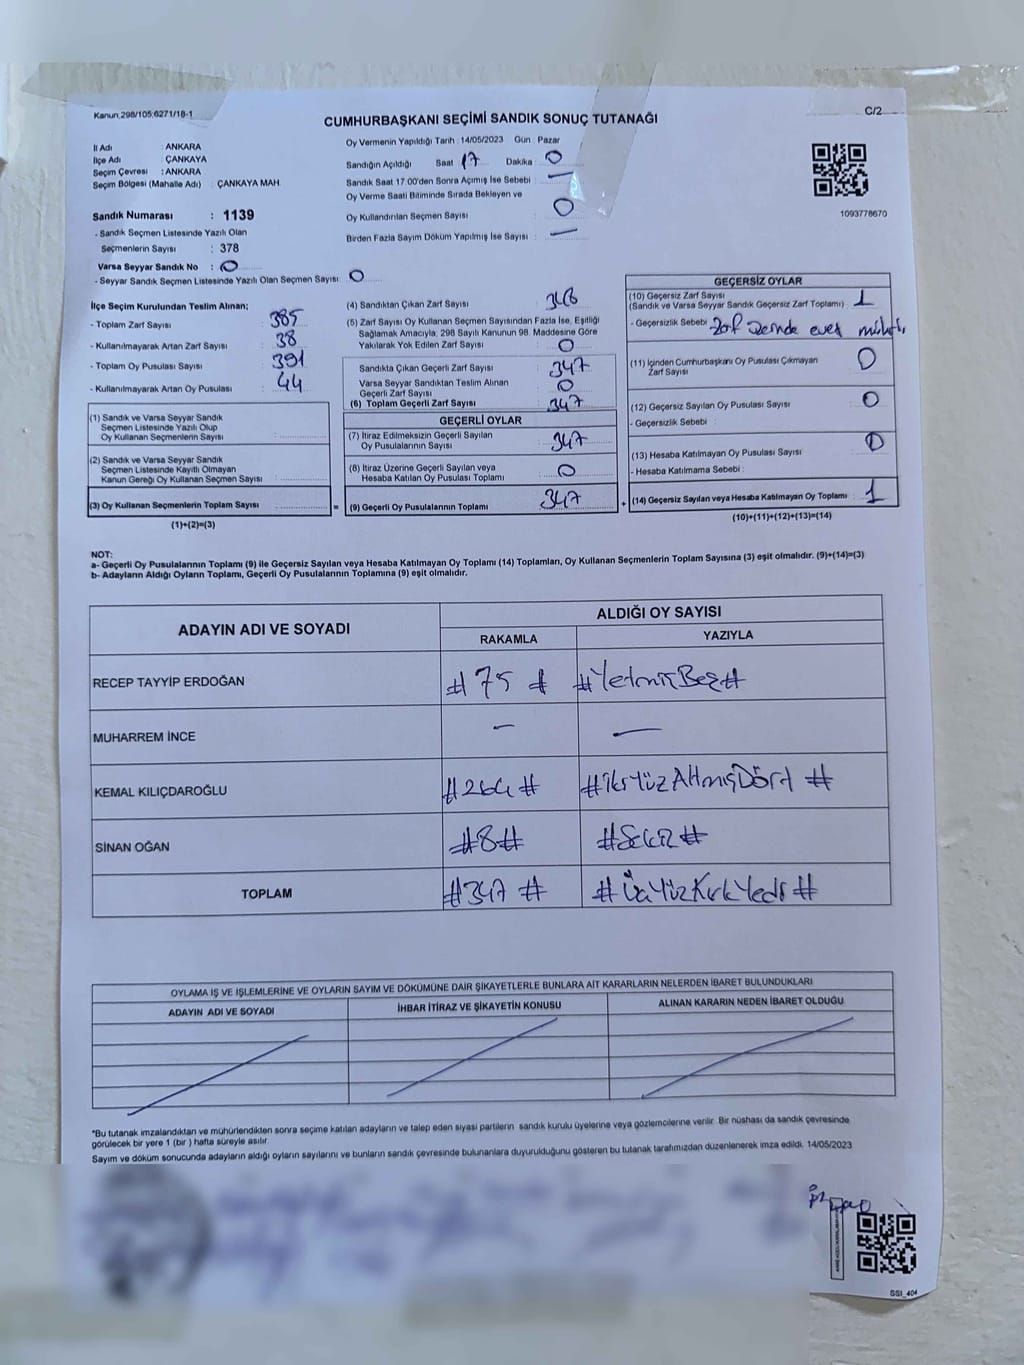 Kanun.298/105.6271/18-1
C/2
CUMHURBAŞKANI SEÇİMİ SANDIK SONUÇ TUTANAĞI
İl Adı : ANKARA
İlçe Adı : ÇANKAYA
Seçim Çevresi : ANKARA
Seçim Bölgesi (Mahalle Adı) : ÇANKAYA MAH.
Sandık Numarası : 1139
- Sandık Seçmen Listesinde Yazılı Olan
Seçmenlerin Sayısı : 378
Varsa Seyyar Sandık No : 0
- Seyyar Sandık Seçmen Listesinde Yazılı Olan Seçmen Sayısı: 0
Oy Vermenin Yapıldığı Tarih : 14/05/2023 Gün : Pazar
Sandığın Açıldığı Saat 17 Dakika : 0
Sandık Saat 17.00'den Sonra Açımış İse Sebebi : —
Oy Verme Saati Bitiminde Sırada Bekleyen ve
Oy Kullandırılan Seçmen Sayısı : 0
Birden Fazla Sayım Döküm Yapılmış İse Sayısı : —
1093778670
İlçe Seçim Kurulundan Teslim Alınan;
- Toplam Zarf Sayısı : 385
- Kullanılmayarak Artan Zarf Sayısı : 38
- Toplam Oy Pusulası Sayısı : 391
- Kullanılmayarak Artan Oy Pusulası : 44
(1) Sandık ve Varsa Seyyar Sandık
Seçmen Listesinde Yazılı Olup
Oy Kullanan Seçmenlerin Sayısı :
(2) Sandık ve Varsa Seyyar Sandık
Seçmen Listesinde Kayıtlı Olmayan
Kanun Gereği Oy Kullanan Seçmen Sayısı :
(3) Oy Kullanan Seçmenlerin Toplam Sayısı :
(1)+(2)=(3)
(4) Sandıktan Çıkan Zarf Sayısı : 348
(5) Zarf Sayısı Oy Kullanan Seçmen Sayısından Fazla İse, Eşitliği
Sağlamak Amacıyla, 298 Sayılı Kanunun 98. Maddesine Göre
Yakılarak Yok Edilen Zarf Sayısı : 0
Sandıkta Çıkan Geçerli Zarf Sayısı : 347
Varsa Seyyar Sandıktan Teslim Alınan
Geçerli Zarf Sayısı : 0
(6) Toplam Geçerli Zarf Sayısı : 347
GEÇERLİ OYLAR
(7) İtiraz Edilmeksizin Geçerli Sayılan
Oy Pusulalarının Sayısı : 347
(8) İtiraz Üzerine Geçerli Sayılan veya
Hesaba Katılan Oy Pusulası Toplamı : 0
= (9) Geçerli Oy Pusulalarının Toplamı : 347
GEÇERSİZ OYLAR
(10) Geçersiz Zarf Sayısı
(Sandık ve Varsa Seyyar Sandık Geçersiz Zarf Toplamı) : 1
- Geçersizlik Sebebi : Zarf üzerinde evet mühürlü
(11) İçinden Cumhurbaşkanı Oy Pusulası Çıkmayan
Zarf Sayısı : 0
(12) Geçersiz Sayılan Oy Pusulası Sayısı : 0
- Geçersizlik Sebebi :
(13) Hesaba Katılmayan Oy Pusulası Sayısı : 0
- Hesaba Katılmama Sebebi :
+ (14) Geçersiz Sayılan veya Hesaba Katılmayan Oy Toplamı : 1
(10)+(11)+(12)+(13)=(14)
NOT:
a- Geçerli Oy Pusulalarının Toplamı (9) ile Geçersiz Sayılan veya Hesaba Katılmayan Oy Toplamı (14) Toplamları, Oy Kullanan Seçmenlerin Toplam Sayısına (3) eşit olmalıdır. (9)+(14)=(3)
b- Adayların Aldığı Oyların Toplamı, Geçerli Oy Pusulalarının Toplamına (9) eşit olmalıdır.
ADAYIN ADI VE SOYADI
ALDIĞI OY SAYISI
RAKAMLA YAZIYLA
RECEP TAYYİP ERDOĞAN #75# #YetmişBeş#
MUHARREM İNCE — —
KEMAL KILIÇDAROĞLU #264# #ikiYüzAltmışDört#
SİNAN OĞAN #8# #Sekiz#
TOPLAM #347# #ÜçYüzKırkYedi#
OYLAMA İŞ VE İŞLEMLERİNE VE OYLARIN SAYIM VE DÖKÜMÜNE DAİR ŞİKAYETLERLE BUNLARA AİT KARARLARIN NELERDEN İBARET BULUNDUKLARI
ADAYIN ADI VE SOYADI İHBAR İTİRAZ VE ŞİKAYETİN KONUSU ALINAN KARARIN NEDEN İBARET OLDUĞU
*Bu tutanak imzalandıktan ve mühürlendikten sonra seçime katılan adayların ve talep eden siyasi partilerin sandık kurulu üyelerine veya gözlemcilerine verilir. Bir nüshası da sandık çevresinde
görülecek bir yere 1 (bir ) hafta süreyle asılır.
Sayım ve döküm sonucunda adayların aldığı oyların sayılarını ve bunların sandık çevresinde bulunanlara duyurulduğunu gösteren bu tutanak tarafımızdan düzenlenerek imza edildi. 14/05/2023
SSI_404